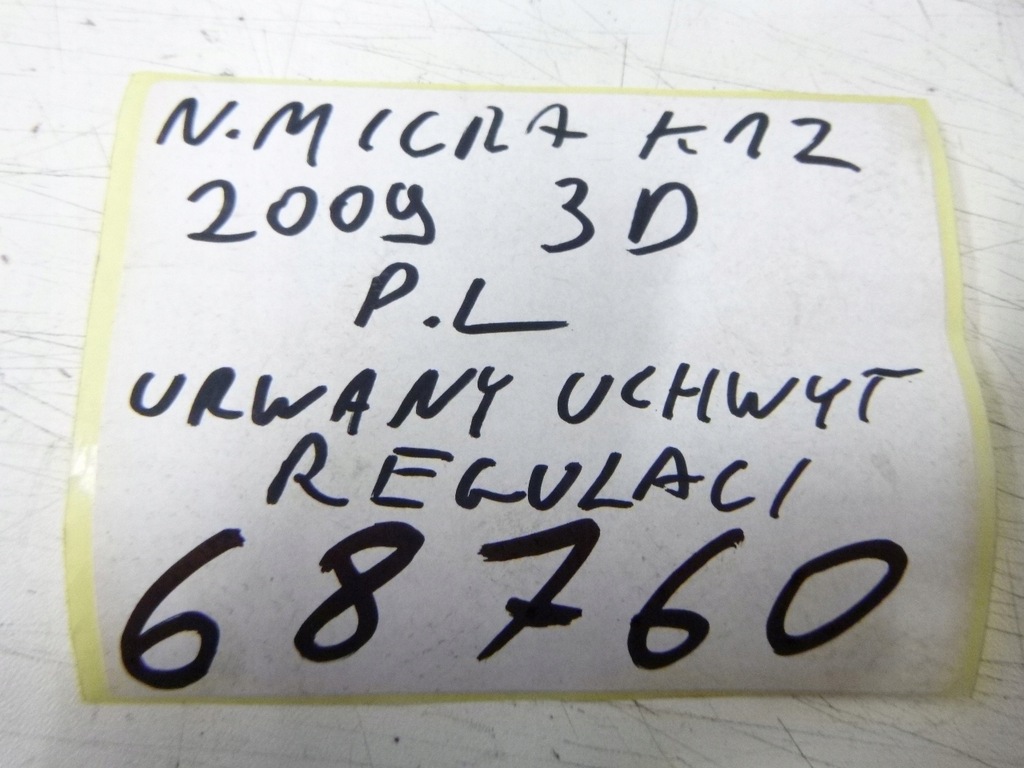 N.MICRA K12
2009 3D
P.L
URWANY UCHWYT
REGULACI
68760